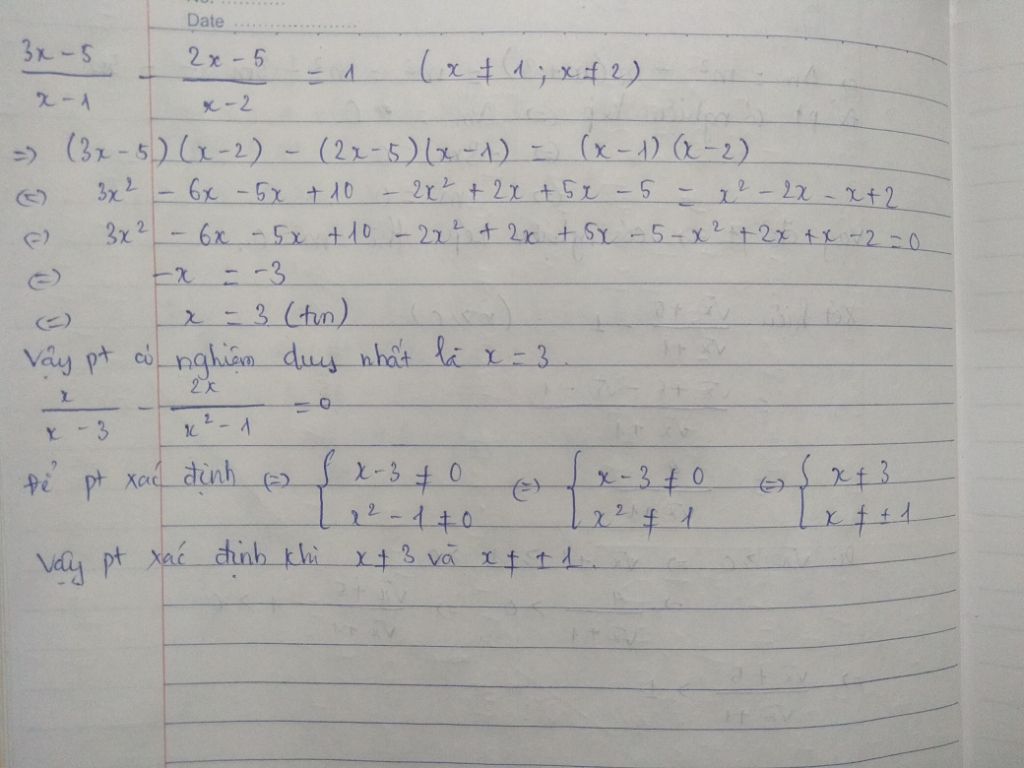 No. ............
Date .....................
(3x - 5)/(x - 1) - (2x - 5)/(x - 2) = 1 (x ≠ 1 ; x ≠ 2)
=> (3x - 5)(x - 2) - (2x - 5)(x - 1) = (x - 1)(x - 2)
(=) 3x² - 6x - 5x + 10 - 2x² + 2x + 5x - 5 = x² - 2x - x + 2
(=) 3x² - 6x - 5x + 10 - 2x² + 2x + 5x - 5 - x² + 2x + x - 2 = 0
(=) -x = -3
(=) x = 3 (tm)
Vậy pt có nghiệm duy nhất là x = 3.
x/(x - 3) - 2x/(x² - 1) = 0
Để pt xác định (=) { x - 3 ≠ 0 ; x² - 1 ≠ 0 (=) { x - 3 ≠ 0 ; x² ≠ 1 (=) { x ≠ 3 ; x ≠ ±1
Vậy pt xác định khi x ≠ 3 và x ≠ ±1.